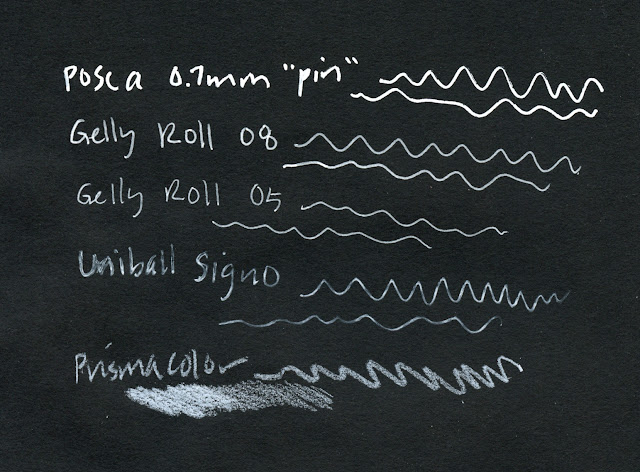 Posca 0.7mm "pin"
Gelly Roll 08
Gelly Roll 05
Uniball Signo
Prismacolor